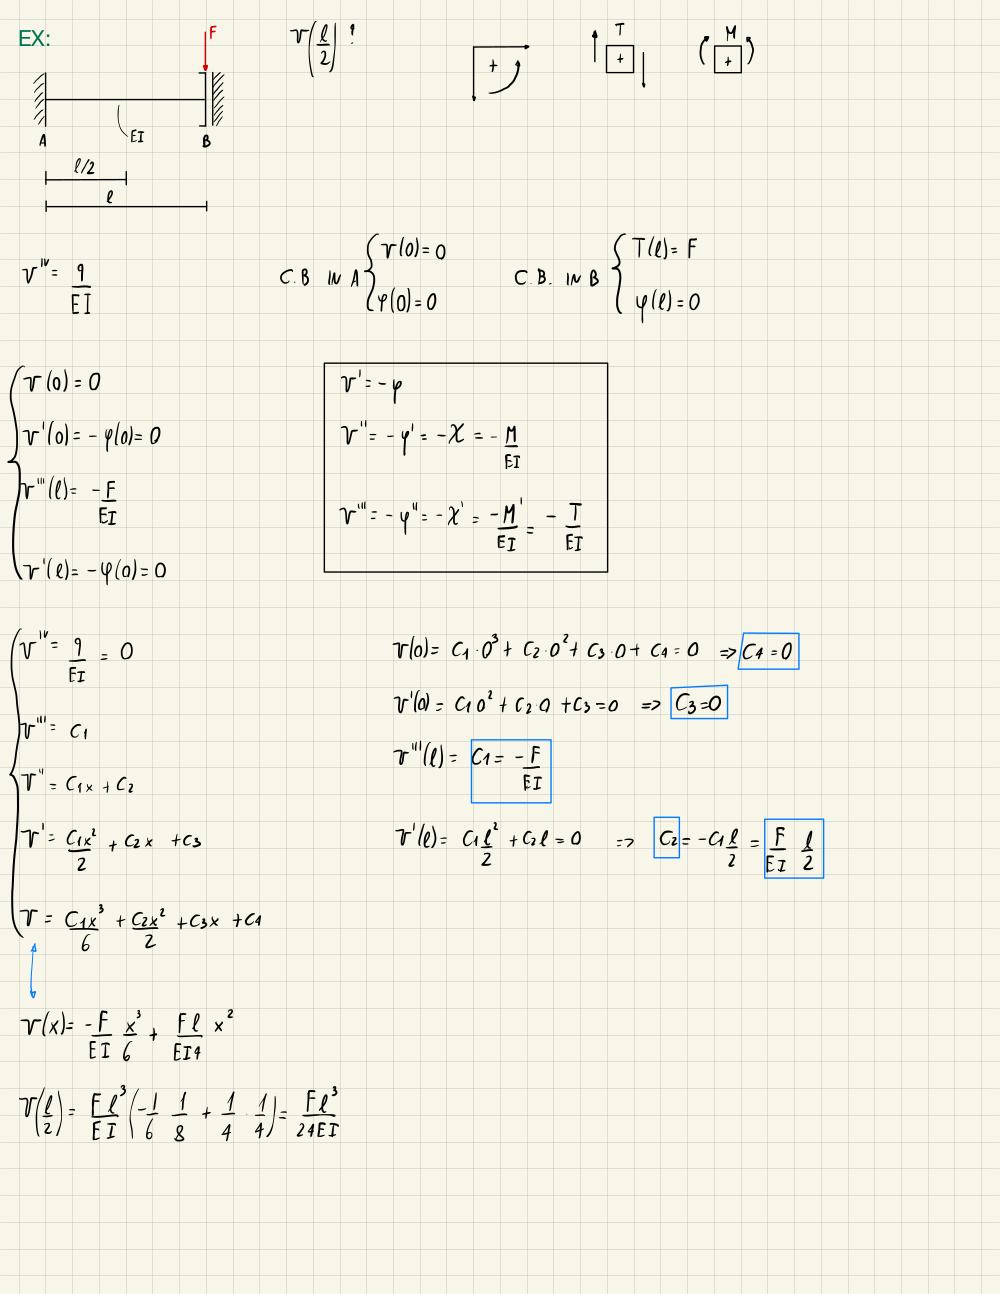 EX:
F
v(l/2) ?
+
T
+
M
+
A
EI
B
l/2
l
v^IV = q/EI
C.B IN A { v(0) = 0
φ(0) = 0
C.B. IN B { T(l) = F
φ(l) = 0
v(0) = 0
v'(0) = - φ(0) = 0
v'''(l) = -F/EI
v'(l) = -φ(0) = 0
v' = -φ
v'' = - φ' = -χ = - M/EI
v''' = - φ'' = -χ' = -M'/EI = - T/EI
v^IV = q/EI = 0
v''' = C1
v'' = C1x + C2
v' = C1x²/2 + C2x + C3
v = C1x³/6 + C2x²/2 + C3x + C4
v(0) = C1·0³ + C2·0² + C3·0 + C4 = 0 => C4 = 0
v'(0) = C1 0² + C2·0 + C3 = 0 => C3 = 0
v'''(l) = C1 = -F/EI
v'(l) = C1 l²/2 + C2 l = 0 => C2 = -C1 l/2 = F/EI l/2
v(x) = -F/EI x³/6 + Fl/EI4 x²
v(l/2) = Fl³/EI (-1/6 1/8 + 1/4 · 1/4) = Fl³/24EI